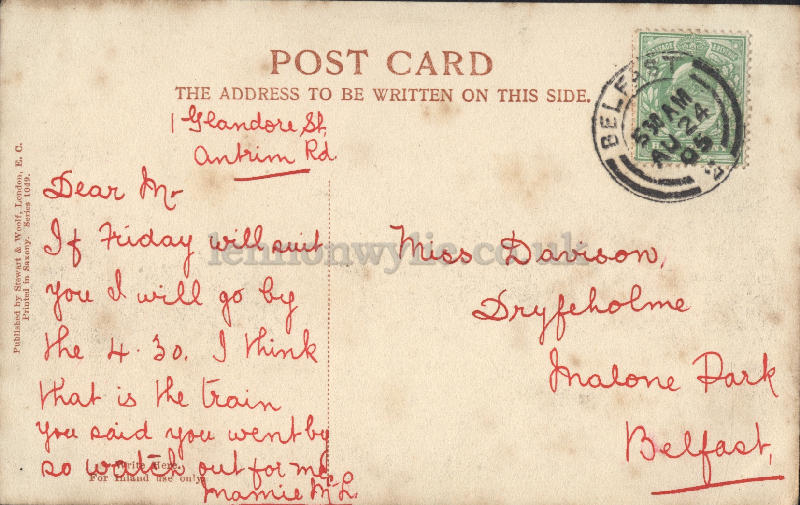 POST CARD
THE ADDRESS TO BE WRITTEN ON THIS SIDE.
1 Glandore St,
Antrim Rd
Dear M-
If Friday will suit
you I will go by
the 4.30. I think
that is the train
you said you went by
so watch out for me
Mamie McL.
Write Here.
For Inland use only.
Miss Davison,
Dryfeholme
Malone Park
Belfast,
BELFAST
5 30 AM
AU 24
05
Published by Stewart & Woolf, London, E. C.
Printed in Saxony. Series 1049.
lennonwylie.co.uk